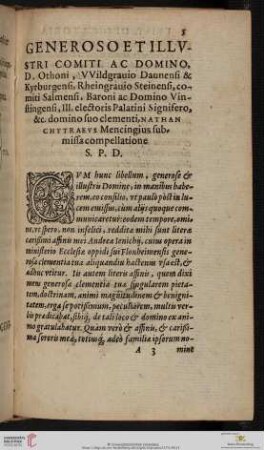 5
GENEROSO ET ILLV-
STRI COMITI AC DOMINO,
D. Othoni, VVildgrauio Daunensi &
Kyrburgensi, Rheingrauio Steinensi, co-
miti Salmensi, Baroni ac Domino Vin-
stingensi, Ill. electoris Palatini Signifero,
&c. domino suo clementi, NATHAN
CHYTRAEVS Mencingius sub-
missa compellatione
S. P. D.
CVM hunc libellum, generose &
illustris Domine, in manibus habe-
rem eo consilio, vt paulò pòst in lu-
cem emissus, cum alijs quoque com-
municaretur: eodem tempore, omi-
ne, vt spero, non infelici, reddita mihi sunt litera
carissimi affinis mei Andreæ Ienischij, cuius opera in
ministerio Ecclesiæ oppidi sui Flonheimensis gene-
rosa clementia tua aliquandiu hactenus vsa est, &
adhuc vtitur. Iis autem literis affinis, quem dixi
meus generosæ clementiæ tuæ singularem pieta-
tem, doctrinam, animi magnitudinem & benigni-
tatem, erga se potissimum, peculiarem, multis ver-
bis prædicabat, sibiq́; de tali loco & domino ex ani-
mo gratulabatur. Quam verò & affinis, & carissi-
ma sororis meæ, totiusq́; adeò familiæ ipsorum no-
A 3 mine